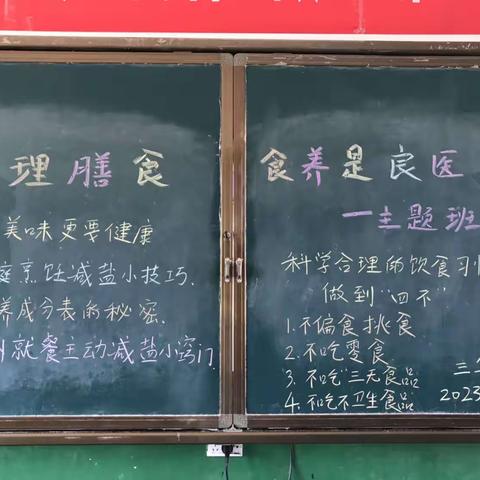 理膳食
美味更要健康
庭烹饪减盐小技巧.
养成分表的秘密.
就餐主动减盐小窍门
食养是良医
一主题班
科学合理的饮食习
做到“四不”
1.不偏食挑食
2.不吃零食
3.不吃“三无食品
4.不吃不卫生食品
三
2023